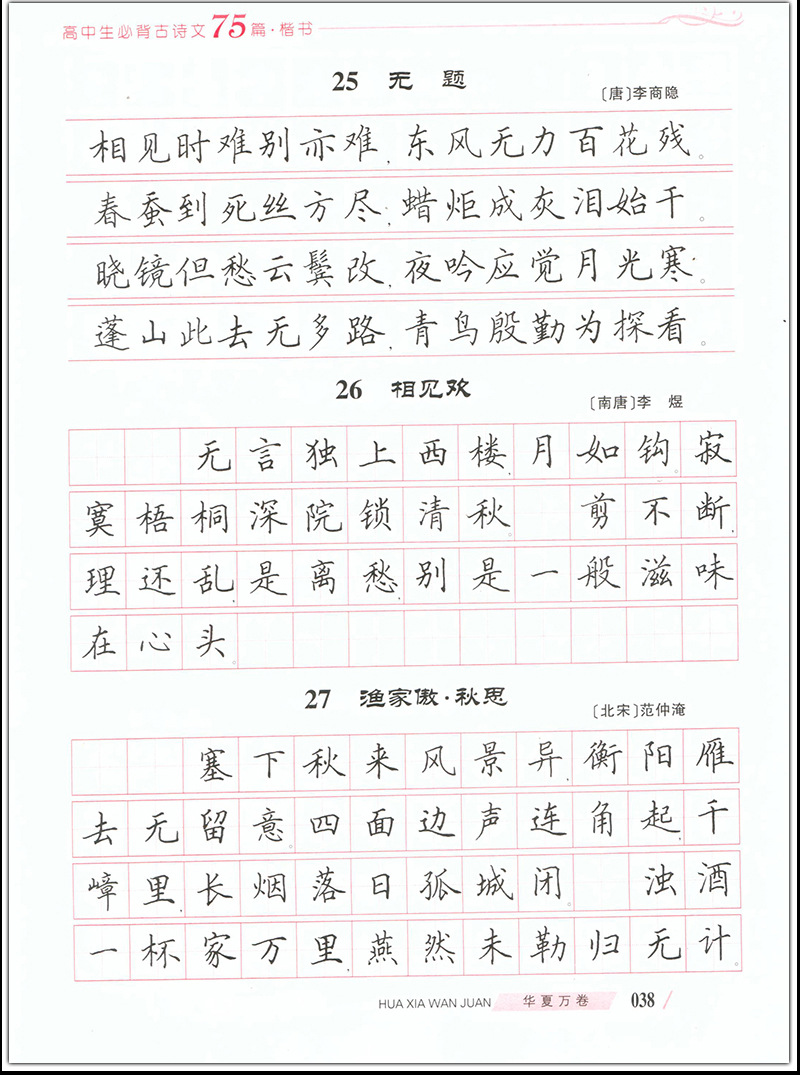 高中生必背古诗文75篇·楷书
25 无题
〔唐〕李商隐
相见时难别亦难,东风无力百花残。
春蚕到死丝方尽,蜡炬成灰泪始干。
晓镜但愁云鬓改,夜吟应觉月光寒。
蓬山此去无多路,青鸟殷勤为探看。
26 相见欢
〔南唐〕李煜
无言独上西楼,月如钩。寂
寞梧桐深院锁清秋。 剪不断,
理还乱,是离愁。别是一般滋味
在心头。
27 渔家傲·秋思
〔北宋〕范仲淹
塞下秋来风景异,衡阳雁
去无留意。四面边声连角起,千
嶂里,长烟落日孤城闭。 浊酒
一杯家万里,燕然未勒归无计。
HUA XIA WAN JUAN 华夏万卷 038